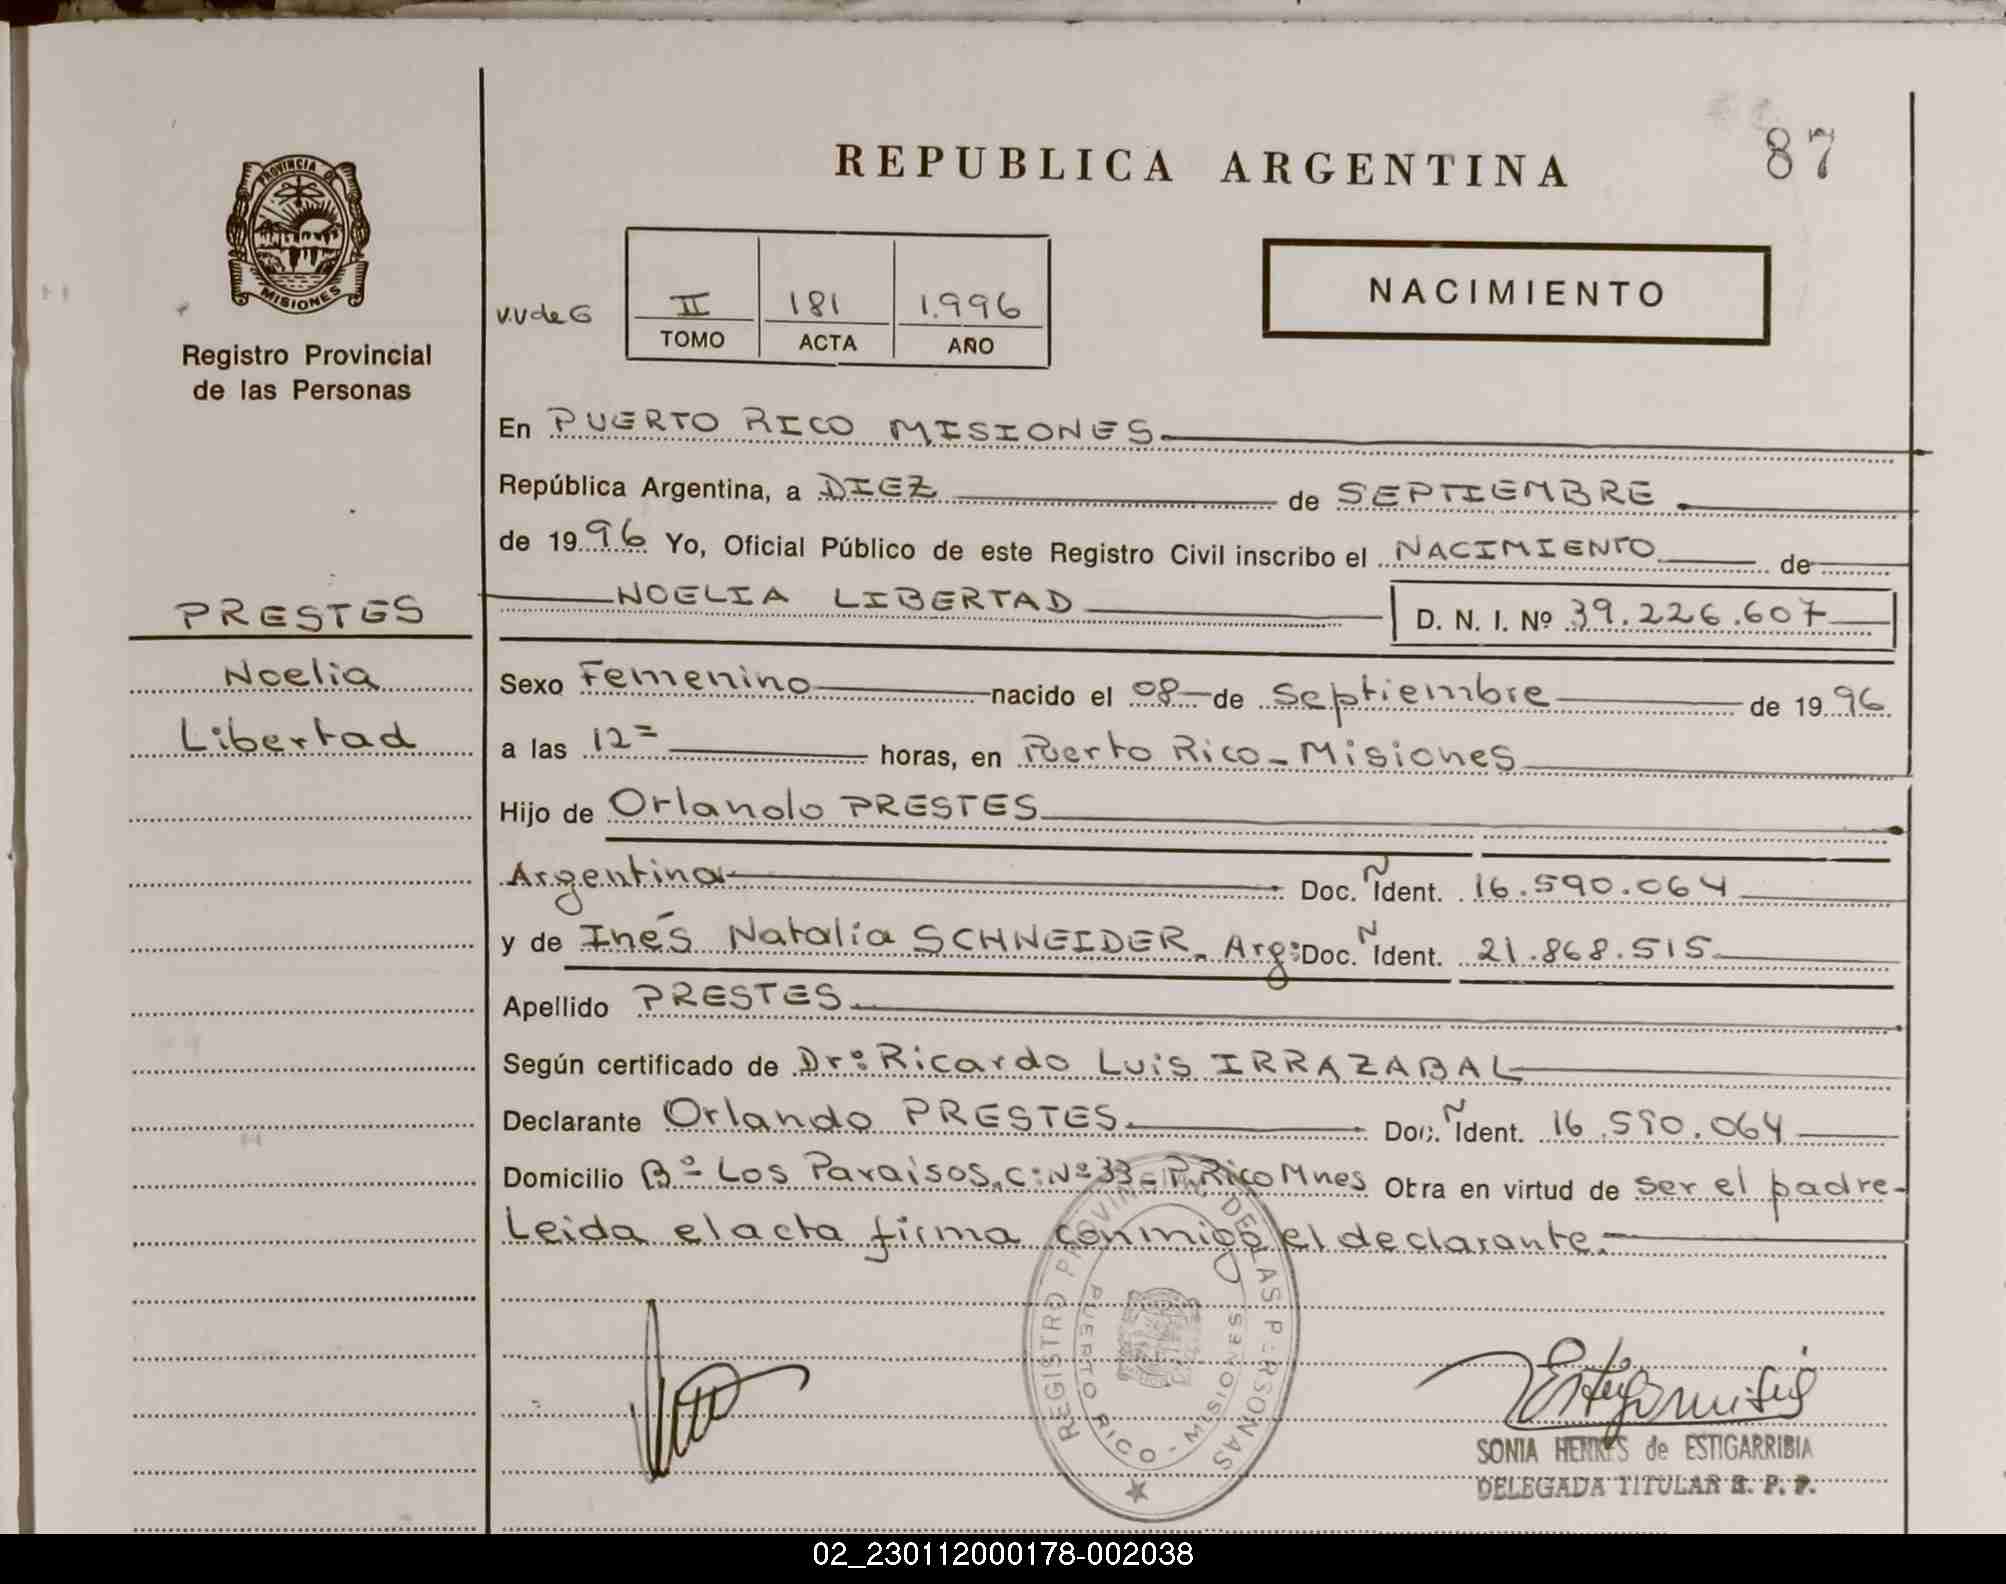 REPUBLICA ARGENTINA
87
PROVINCIA DE
MISIONES
Registro Provincial
de las Personas
V.V de G
II 181 1.996
TOMO ACTA AÑO
NACIMIENTO
En PUERTO RICO MISIONES
República Argentina, a DIEZ de SEPTIEMBRE
de 1996 Yo, Oficial Público de este Registro Civil inscribo el NACIMIENTO de
NOELIA LIBERTAD D. N. I. Nº 39.226.607
PRESTES
Noelia
Libertad
Sexo Femenino nacido el 08 de Septiembre de 1996
a las 12= horas, en Puerto Rico - Misiones
Hijo de Orlando PRESTES
Argentina Doc. Ñ Ident. 16.590.064
y de Inés Natalia SCHNEIDER. Arg: Doc. Ñ Ident. 21.868.515
Apellido PRESTES
Según certificado de Dr: Ricardo Luis IRRAZABAL
Declarante Orlando PRESTES Doc. Ñ Ident. 16.590.064
Domicilio Bº Los Paraisos, C: Nº 33 - P. Rico Mnes Obra en virtud de ser el padre-
Leida el acta firma conmigo el declarante.
REGISTRO PROVINCIAL DE LAS PERSONAS
PUERTO RICO - MISIONES
SONIA HENKES de ESTIGARRIBIA
DELEGADA TITULAR R. P. P.
02_230112000178-002038